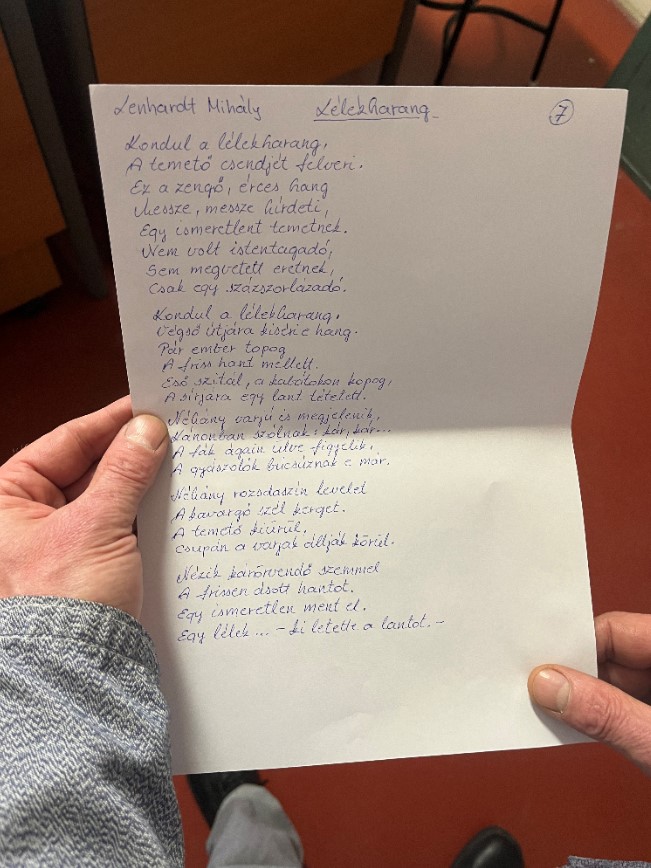 Lenhardt Mihály Lélekharang 7
Kondul a lélekharang,
A temető csendjét felveri.
Ez a zengő, érces hang
Messze, messze hirdeti,
Egy ismeretlent temetnek.
Nem volt istentagadó,
Sem megvetett eretnek,
Csak egy százszorlázadó.
Kondul a lélekharang,
Végső útjára kíséri e hang.
Pár ember topog
A friss hant mellett.
Eső szitál, a kabátokon kopog,
A sírjára egy lant tétetett.
Néhány varjú is megjelenik,
Kánonban szólnak: kár, kár...
A fák ágain ülve figyelik,
A gyászolók búcsúznak e már.
Néhány rozsdaszín levelet
A kavargó szél kerget.
A temető kiürül,
Csupán a varjak állják körül.
Nézik kárörvendő szemmel
A frissen ásott hantot.
Egy ismeretlen ment el.
Egy lélek... - ki letette a lantot. -